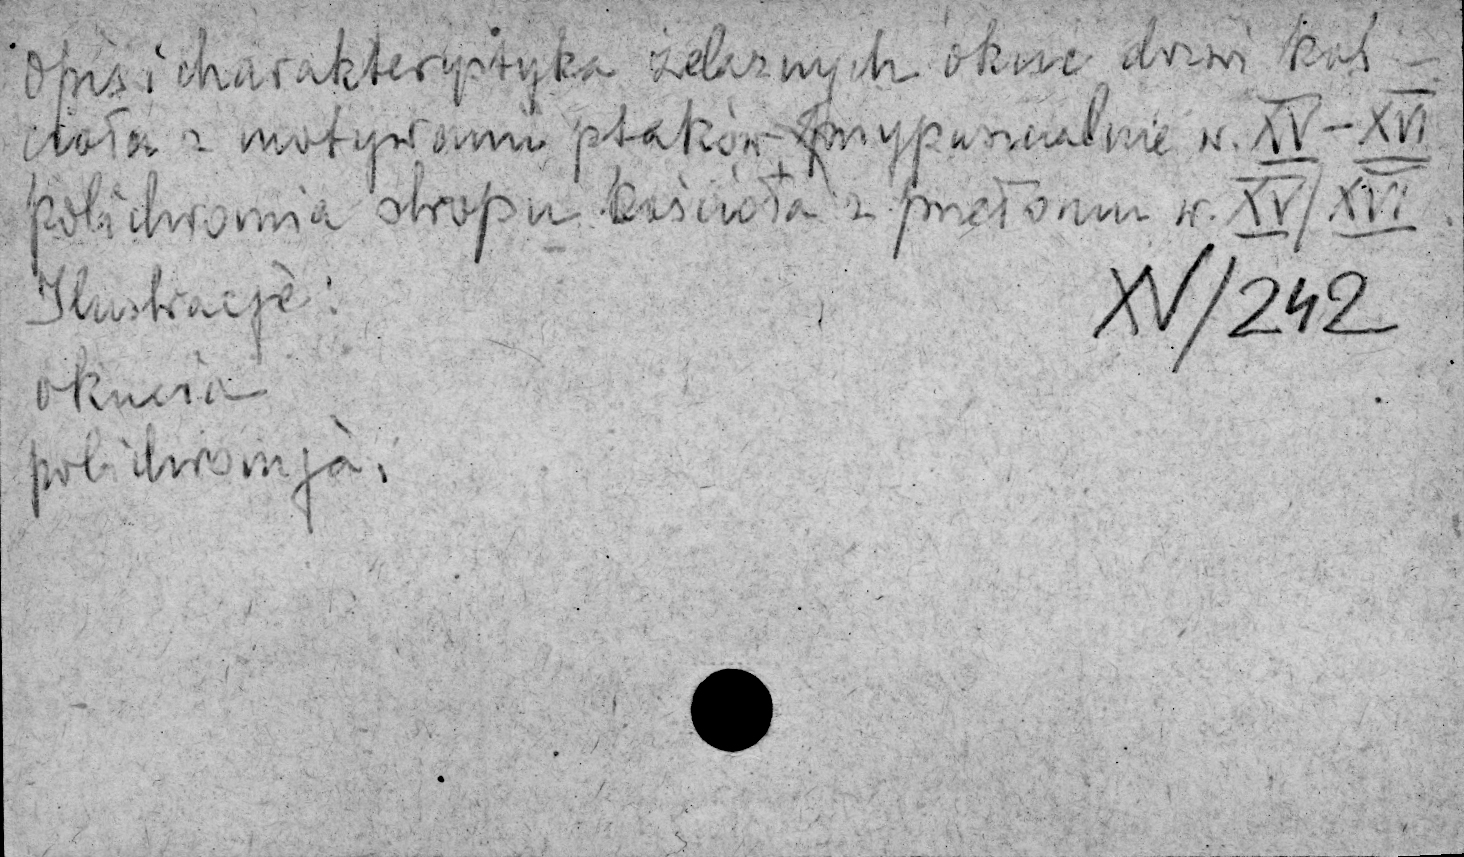 Opis i charakterystyka żelaznych okuć drzwi koś-
cioła z motywami ptaków przypuszczalnie w. XV-XVI
polichromia stropu kościoła z przełomu w. XV/XVI.
Ilustracje:
XV/242
okucia
polichromja.